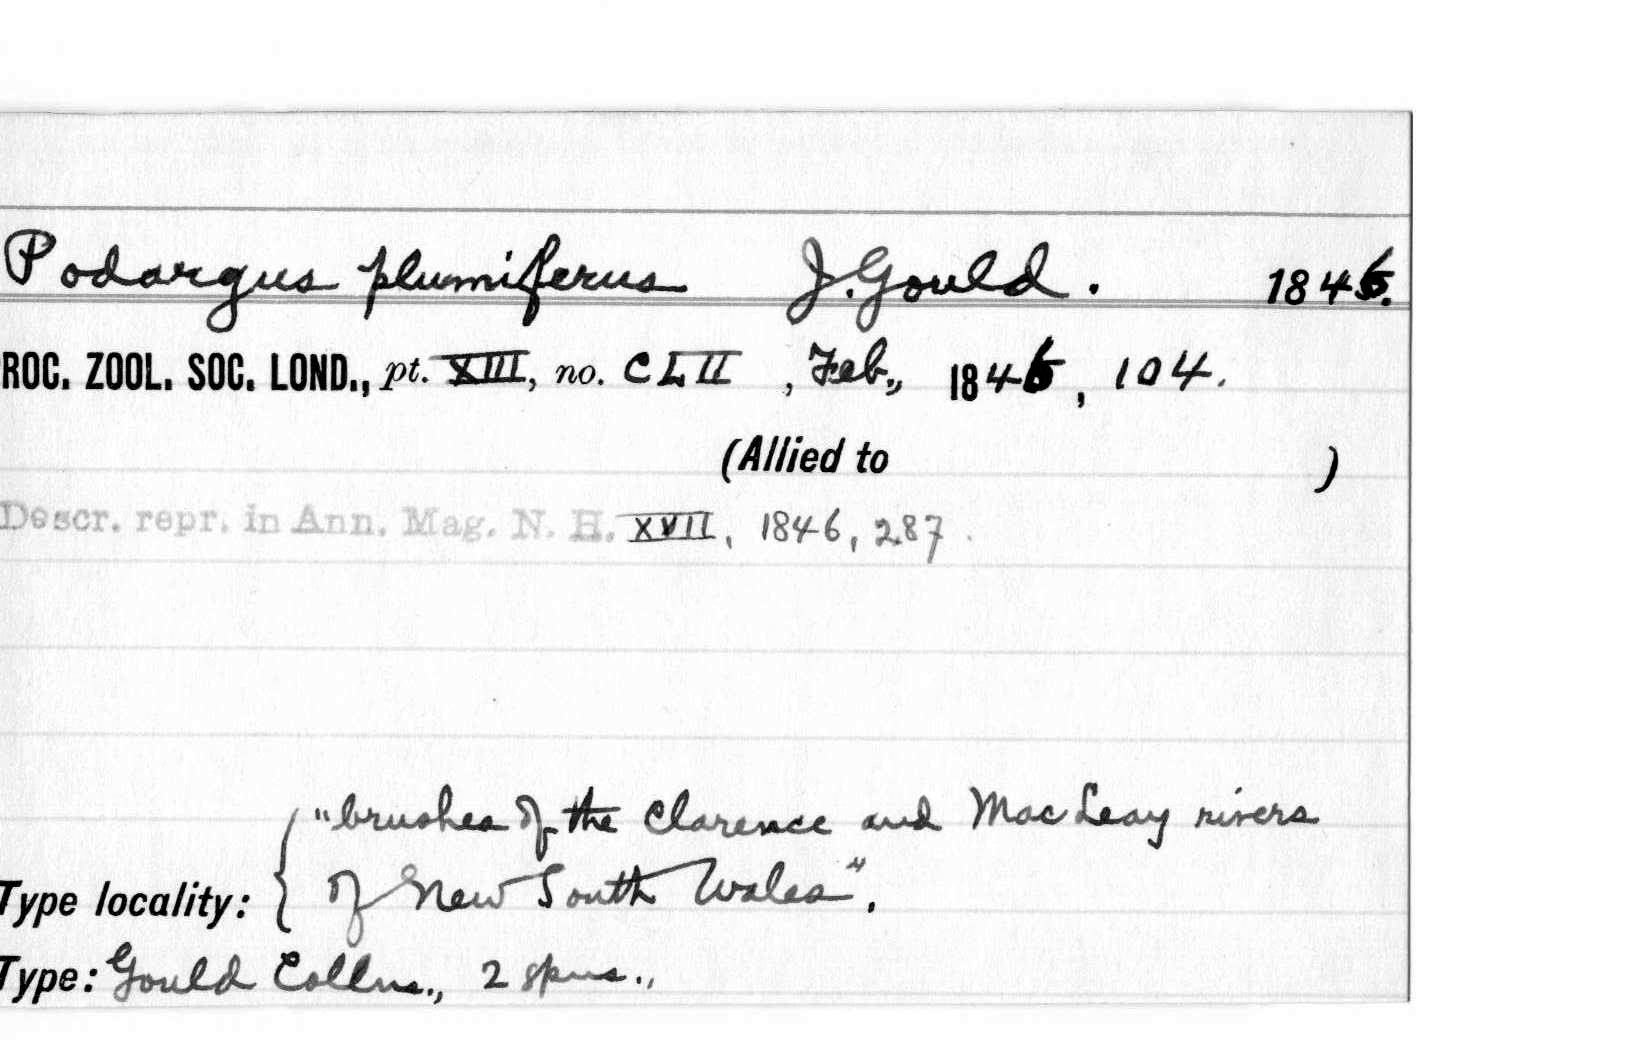 Podargus plumiferus J. Gould. 1846.
ROC. ZOOL. SOC. LOND., pt. XIII, no. CLII, Feb., 1846, 104.
(Allied to )
Descr. repr. in Ann. Mag. N. H. XVII, 1846, 287.
"brushes of the Clarence and MacLeay rivers
Type locality: { of New South Wales".
Type: Gould Collns., 2 spms.,